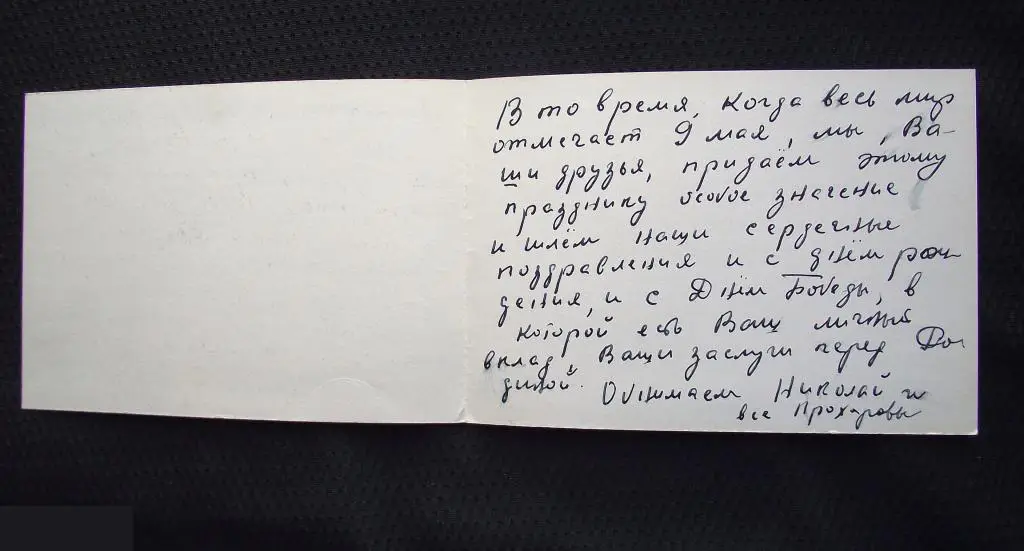 В то время, когда весь мир
отмечает 9 мая, мы, Ва-
ши друзья, придаём этому
празднику особое значение
и шлём наши сердечные
поздравления и с днём рож-
дения, и с Днём Победы, в
которой есть Ваш личный
вклад, Ваши заслуги перед Ро-
диной. Обнимаем Николай и
все Прохоровы